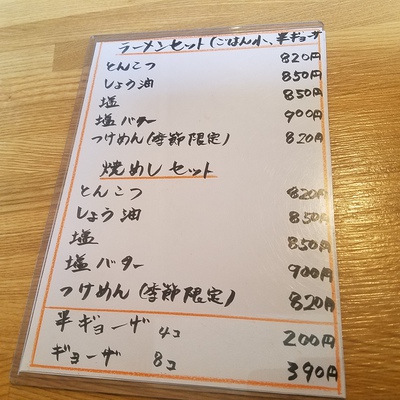 ラーメンセット(ごはん小、半ギョーザ
とんこつ 820円
しょう油 850円
塩 850円
塩バター 900円
つけめん(季節限定) 820円
焼めしセット
とんこつ 820円
しょう油 850円
塩 850円
塩バター 900円
つけめん(季節限定) 820円
半ギョーザ 4コ 200円
ギョーザ 8コ 390円